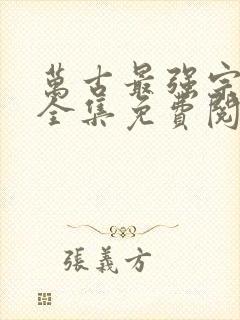 萬古最强宗
全集免費閱
張義方